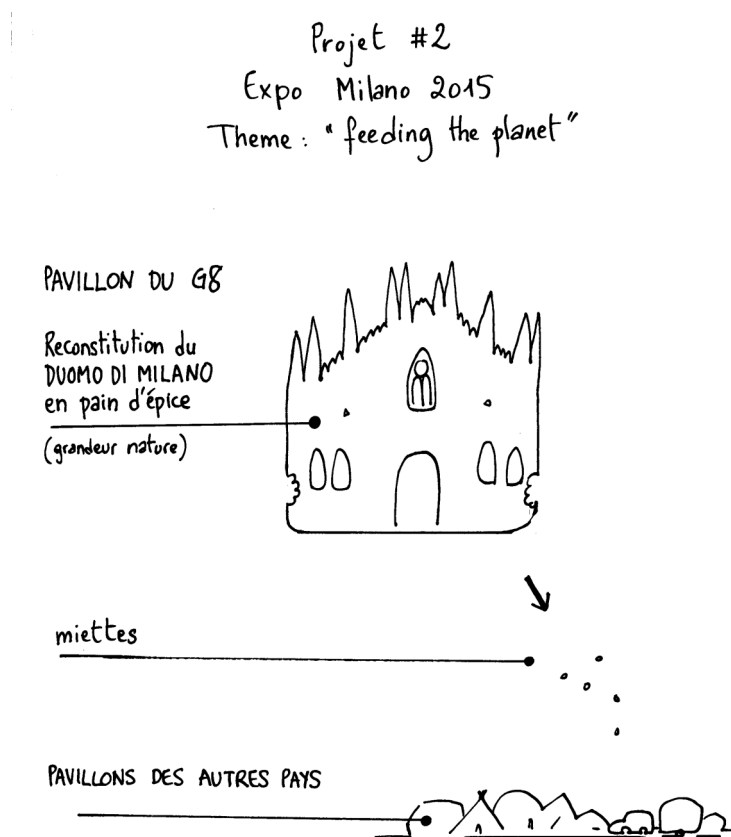 Projet #2
Expo Milano 2015
Theme : "feeding the planet"
PAVILLON DU G8
Reconstitution du
DUOMO DI MILANO
en pain d'épice
(grandeur nature)
miettes
PAVILLONS DES AUTRES PAYS